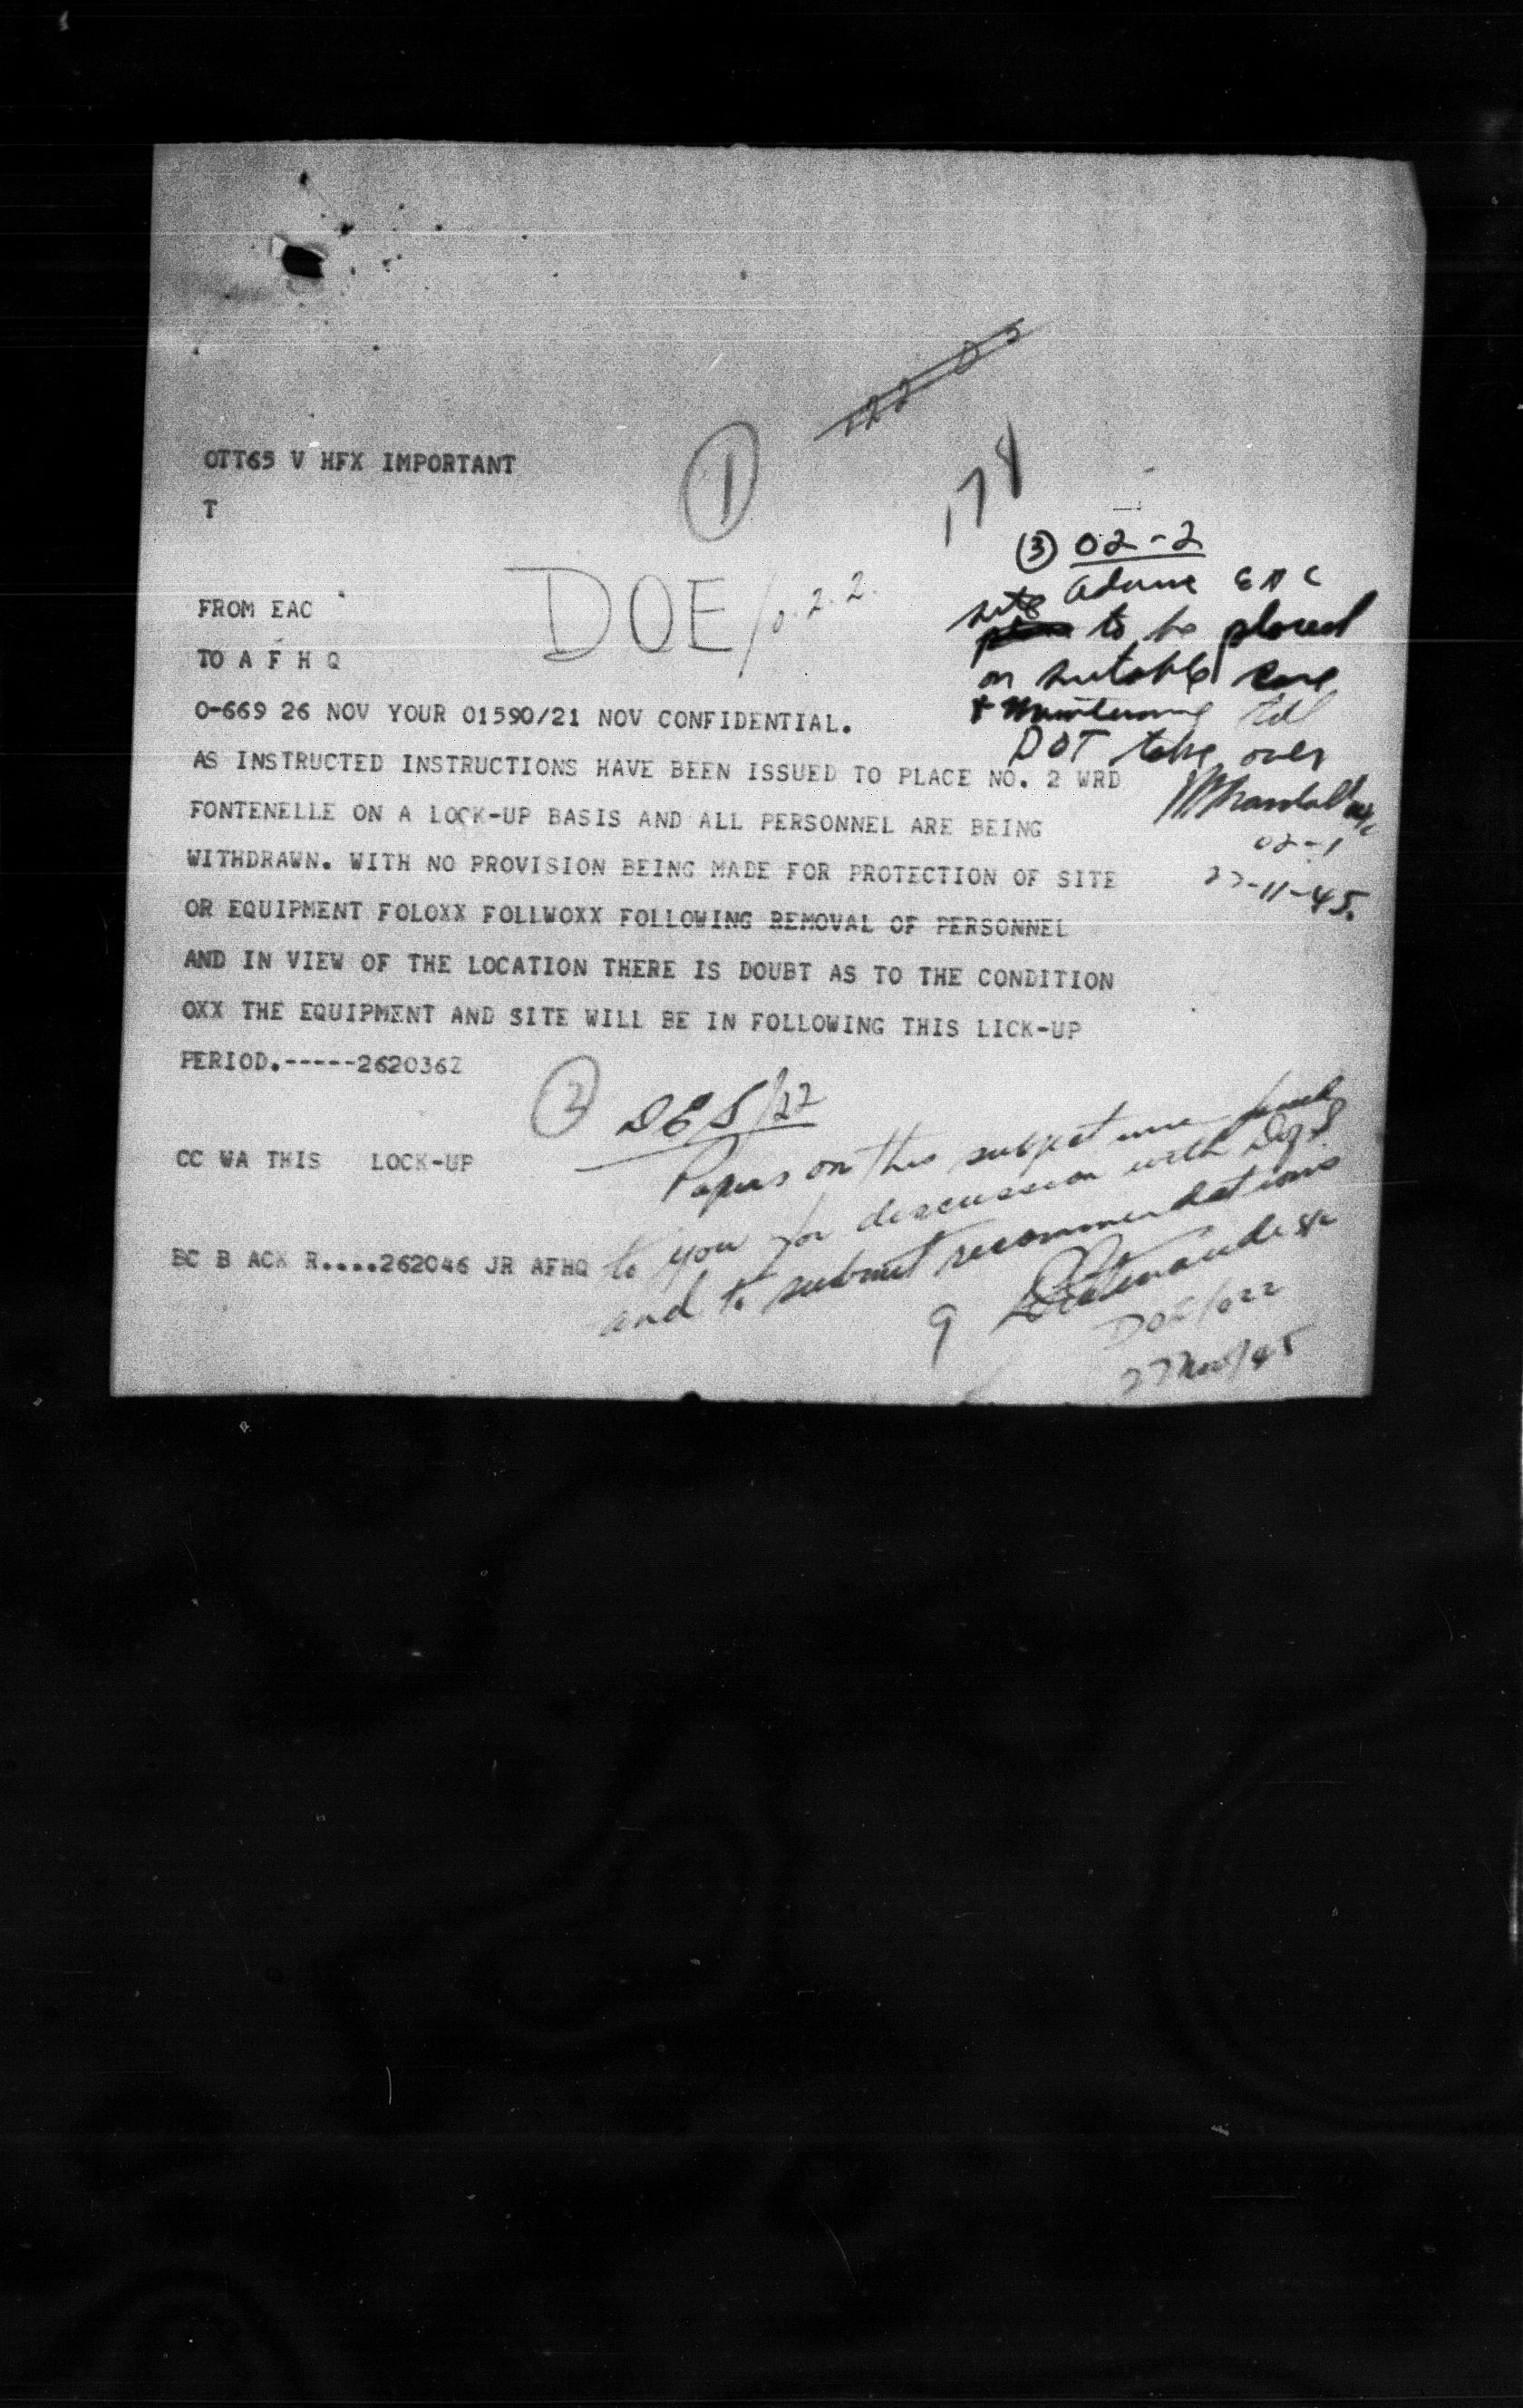 OTT65 V HFX IMPORTANT
T
1
178
DOE/022
FROM EAC
TO A F H Q
O-669 26 NOV YOUR 01590/21 NOV CONFIDENTIAL.
AS INSTRUCTED INSTRUCTIONS HAVE BEEN ISSUED TO PLACE NO. 2 WRD
FONTENELLE ON A LOCK-UP BASIS AND ALL PERSONNEL ARE BEING
WITHDRAWN. WITH NO PROVISION BEING MADE FOR PROTECTION OF SITE
OR EQUIPMENT FOLOXX FOLLWOXX FOLLOWING REMOVAL OF PERSONNEL
AND IN VIEW OF THE LOCATION THERE IS DOUBT AS TO THE CONDITION
OXX THE EQUIPMENT AND SITE WILL BE IN FOLLOWING THIS LICK-UP
PERIOD.-----262036Z
CC WA THIS LOCK-UP
BC B ACK R....262046 JR AFHQ
3 02-2
Advise EAC
site to be placed
on suitable care
& till
DOT take over
02-1
27-11-45.
2 DES/22
Papers on this subject
to you for discussion with
and to submit recommendations
DOE/022
27 Nov/45